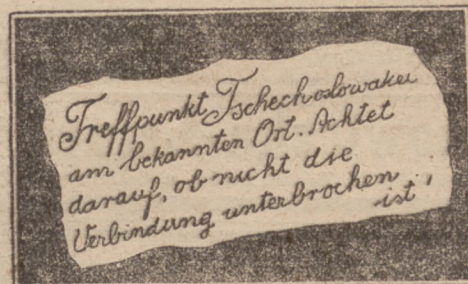 Treffpunkt Tschechoslowakei
am bekannten Ort. Achtet
darauf, ob nicht die
Verbindung unterbrochen
ist,